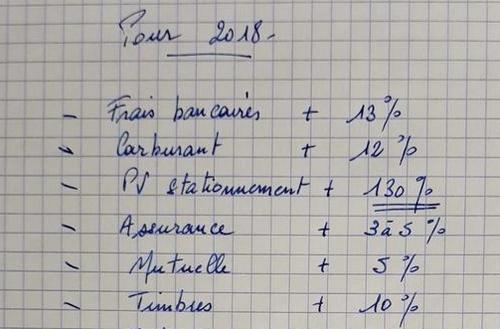 Pour 2018-
- Frais bancaires + 13%
- Carburant + 12%
- PV stationnement + 130%
- Assurance + 3 à 5 %
- Mutuelle + 5%
- Timbres + 10%